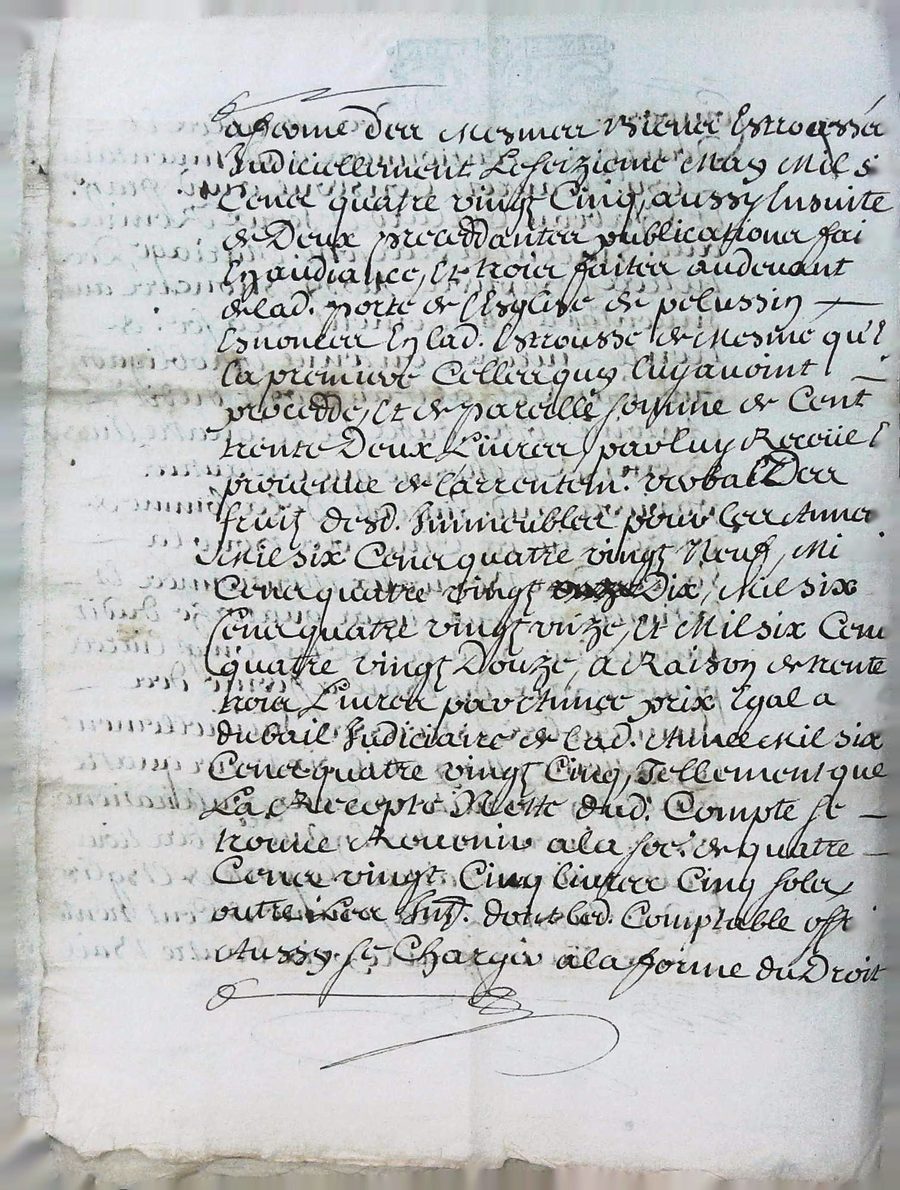 afferme des mesmes biens Estroussés
Judiciellement Le seizieme May Mil s
Cens quatre vingt Cinq, aussy Ensuite
de Deux preceddantes publications fai
En audiance, Et trois faites audevant
de lad. porte de l'Esglise de pelussin —
Esnoncés En lad. Estrousse de Mesme qu'E
la premiere Celles quy luy avoint —
proceddé, Et de pareille somme de Cent
trente Deux Livres par luy Receüe
provenue de l'arrentemt. verbal Des
fruits desd. Immeubles pour les Annes
Mil six Cens quatre vingt Neuf, Mi
Cens quatre vingt Dix, Mil six
Cens quatre vingt unze, Et Mil six Cens
quatre vingt Douze, a Raison de trente
trois Livres par Année prix Egal a
du bail Judiciaire de lad. Année Mil six
Cens quatre vingt Cinq, Tellement que
La Recepte Nette dud. Compte se —
trouve Revenir a la so. de quatre —
Cens vingt Cinq livres Cinq solz
outre les dont led. Comptable off
Aussy se Charger a la forme du Droit